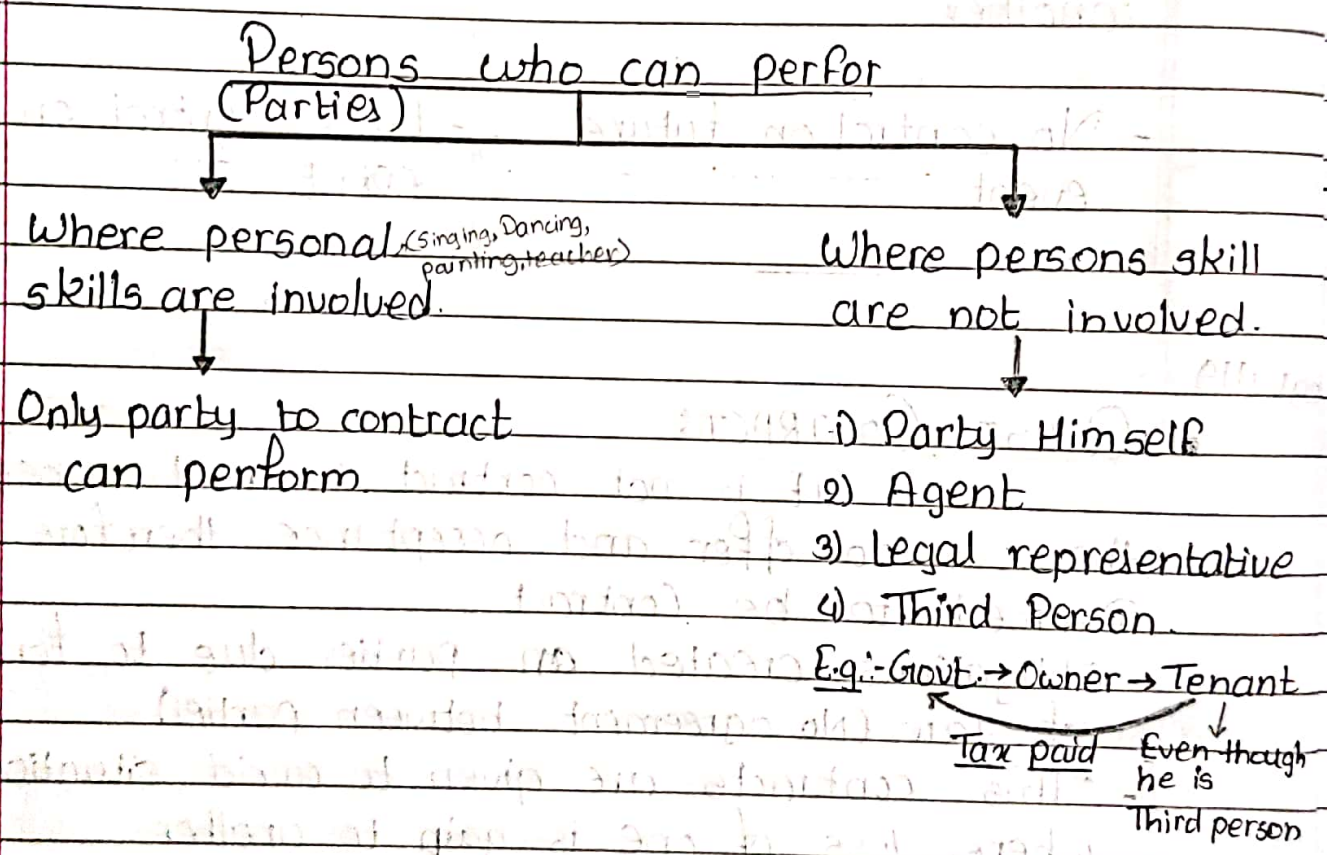 Persons who can perfor
(Parties)
Where personal (Singing, Dancing,
painting, teacher)
skills are involved.
Only party to contract
can perform
Where persons skill
are not involved.
1) Party Himself
2) Agent
3) Legal representative
4) Third Person.
E.g:- Govt. → Owner → Tenant
Tax paid
Even though
he is
Third person